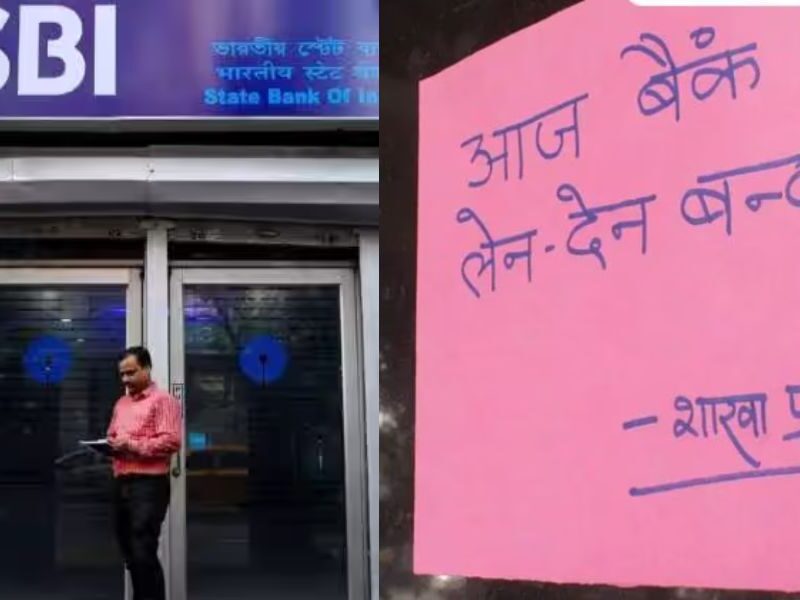 SBI
ভারতীয় স্টেট
भारतीय स्टेट
State Bank Of
आज बैंक
लेन-देन
- शाखा